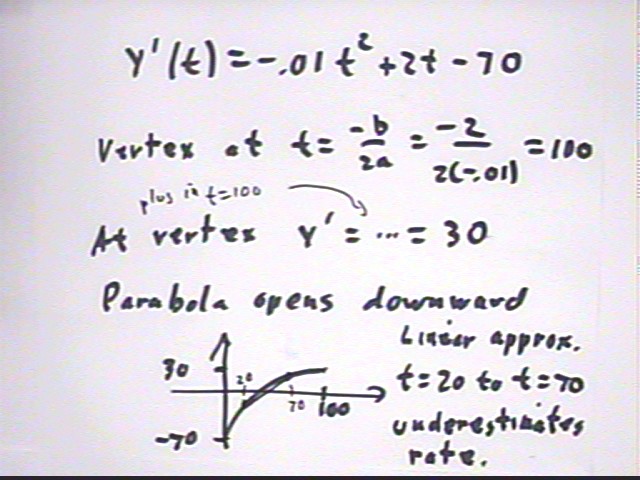 y'(t) = -.01 t² + 2t - 70
Vertex at t = -b/2a = -2/2(-.01) = 100
plug in t=100
At vertex y' = ... = 30
Parabola opens downward
Linear approx.
t=20 to t=70
underestimates
rate.
30
20
70
100
-70